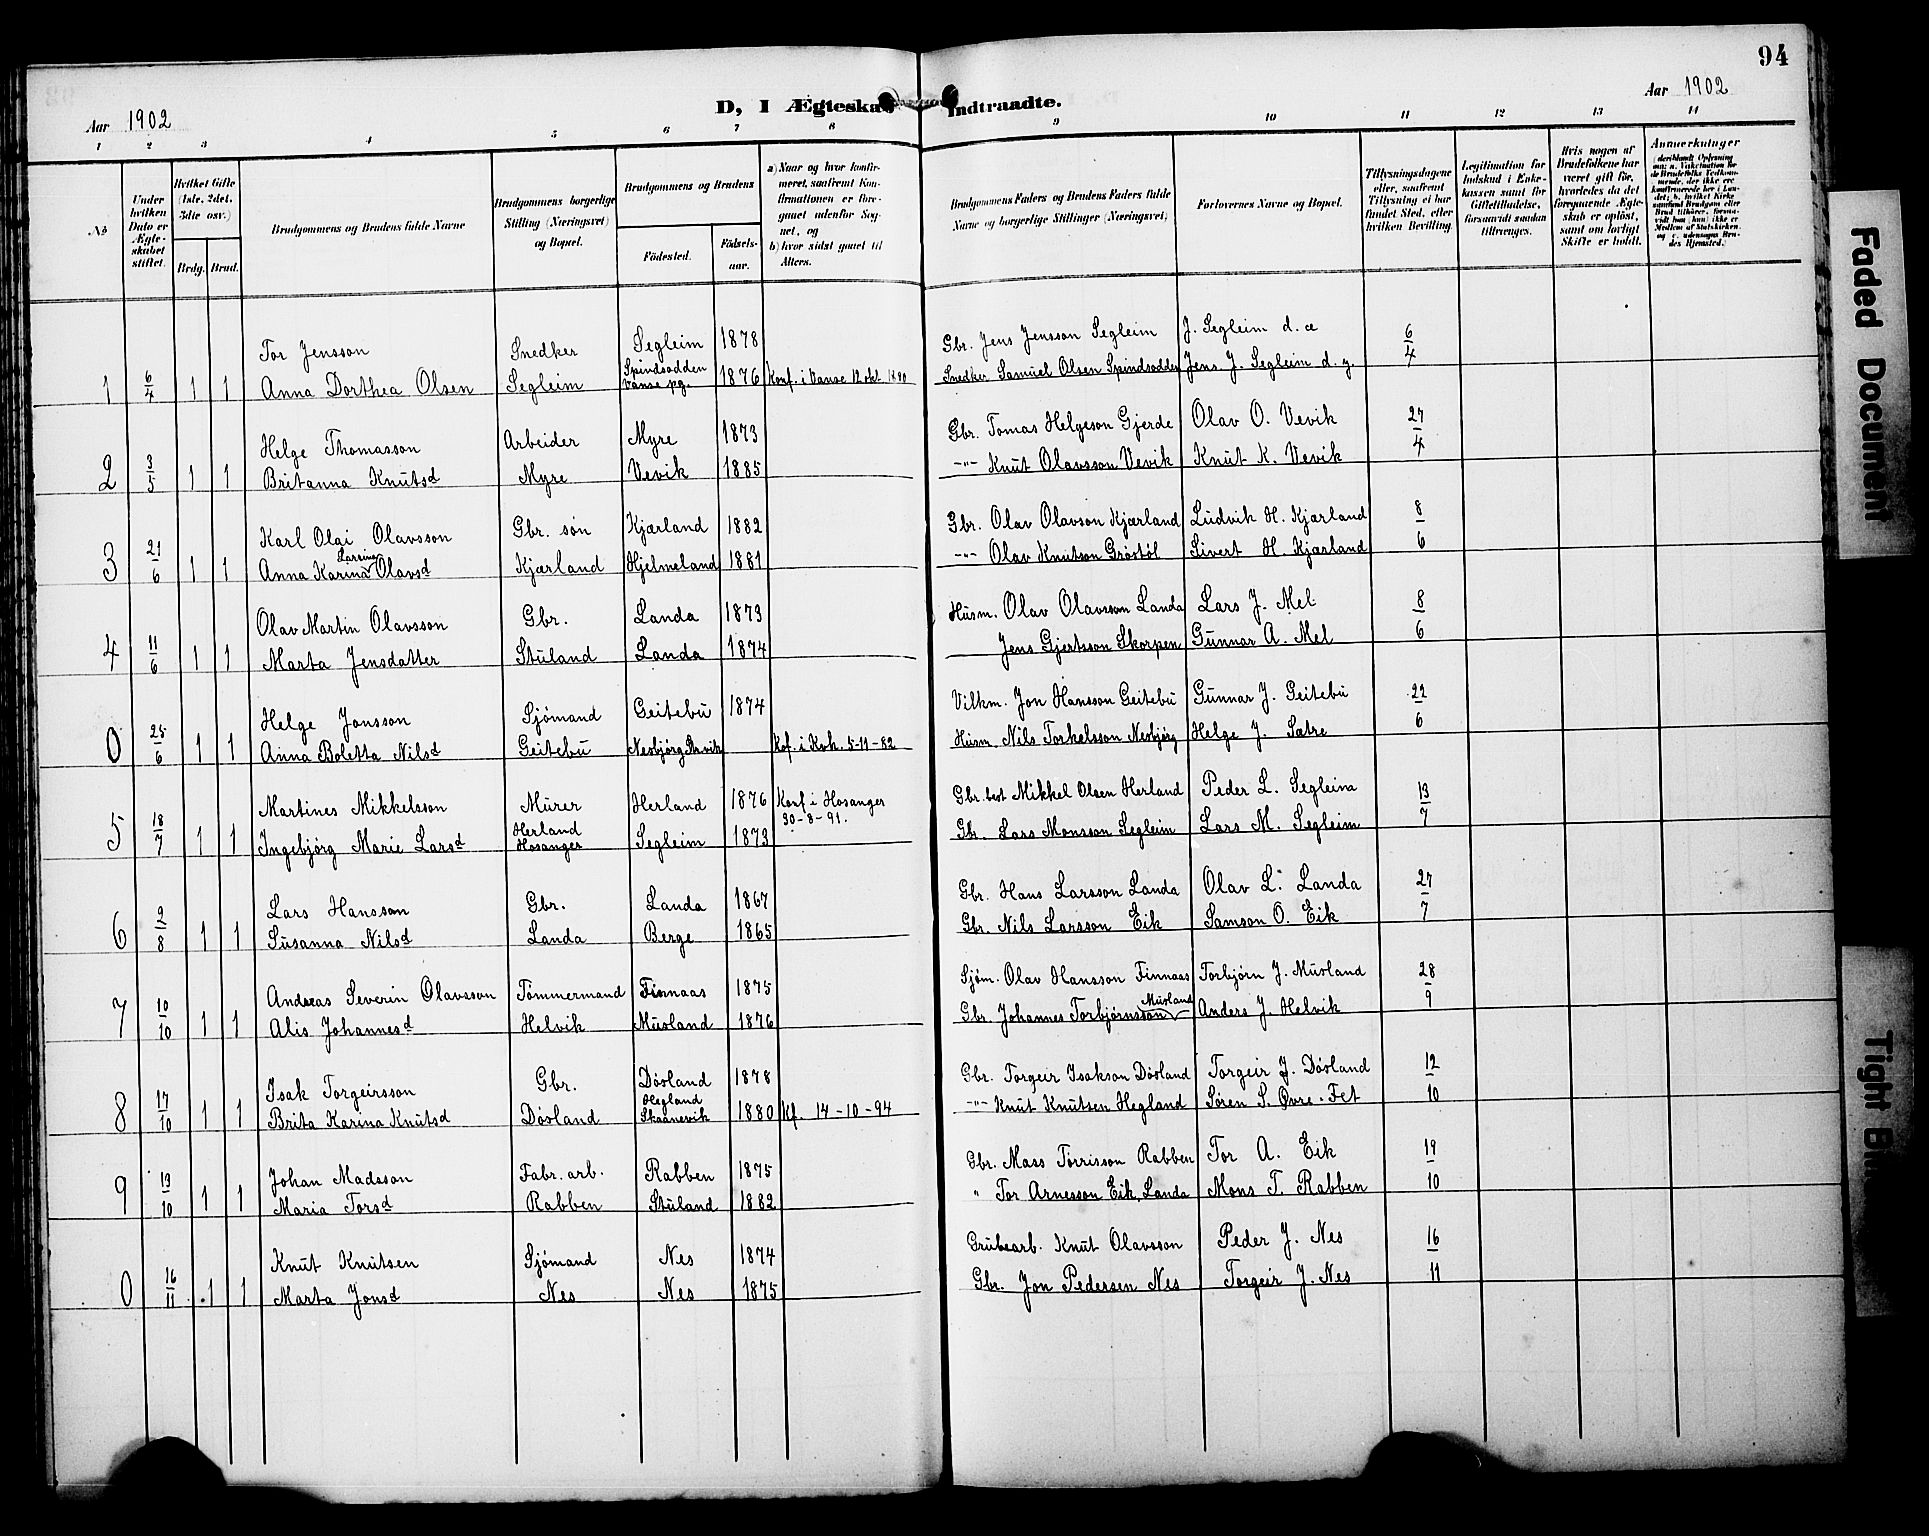 94
Aar 1902
D, I Ægteskab Indtraadte.
Aar 1902
1 2 3 4 5 6 7 8 9 10 11 12 13 14
No
Under hvilken Dato er Ægteskabet stiftet.
Hvilket Gifte (1ste, 2det, 3die osv.)
Brdg. Brud.
Brudgommens og Brudens fulde Navne
Brudgommens borgerlige Stilling (Næringsvei) og Bopæl.
Brudgommens og Brudens
Födested.
Födselsaar.
a) Naar og hvor konfirmeret, saafremt Konfirmationen er foregaaet udenfor Sognet, og
b) hvor sidst gaaet til Alters.
Brudgommens Faders og Brudens Faders fulde Navne og borgerlige Stillinger (Næringsvei)
Forlovernes Navne og Bopæl.
Tillysningsdagene eller, saafremt Tillysning ei har fundet Sted, efter hvilken Bevilling.
Legitimation for Indskud i Enkekassen samt for Giftetilladelse, forsaavidt saadan tiltrænges.
Hvis nogen af Brudefolkene har været gift før, hvorledes da det foregaaende Ægteskab er oplöst, samt om lovligt Skifte er holdt.
Anmærkninger
Tor Jensson Snedker Segleim 1878 Gbr. Jens Jensson Segleim J. Segleim d. æ 6/4
1 6/4 1 1 Anna Dorthea Olsen Segleim Spindsodden Vanse pg. 1876 Konf. i Vanse 12 okt 1890 Snedker Samuel Olsen Spindsodden Jens J. Segleim d. y.
Helge Thomasson Arbeider Myre 1873 Gbr. Tomas Helgeson Gjerde Olav O. Vevik 27/4
2 3/5 1 1 Britanna Knutsd Myre Vevik 1885 -"- Knut Olavsson Vevik Knut K. Vevik
Karl Olai Olavsson Gbr. søn Kjærland 1882 Gbr. Olav Olavson Kjærland Ludvik H. Kjærland 8/6
3 21/6 1 1 Anna Karina Larsina Olavsd Kjærland Hjelmeland 1881 -"- Olav Knutson Grøstøl Sivert H. Kjærland
Olav Martin Olavsson Gbr. Landa 1873 Husm. Olav Olavsson Landa Lars J. Mel 8/6
4 11/6 1 1 Marta Jensdatter Stuland Landa 1874 Jens Gjertsson Skorpen Gunnar A. Mel
Helge Jonsson Sjömand Geitebu 1874 Vilkm. Jon Hansson Geitebu Gunnar J. Geitebu 22/6
0 25/6 1 1 Anna Boletta Nilsd Geitebu Nesbjörg Ølvik Kof. i Kvh. 5-11-82 Husm. Nils Torkelsson Nesbjörg Helge J. Sætre
Martines Mikkelsson Murer Herland 1876 Konf i Hosanger 30-8-91. Gbr. best Mikkel Olsen Herland Peder L. Segleim 13/7
5 18/7 1 1 Ingebjörg Marie Larsd Herland Hosanger Segleim 1873 Gbr. Lars Monsson Segleim Lars M. Segleim
Lars Hansson Gbr. Landa 1867 Gbr. Hans Larsson Landa Olav L. Landa 27/7
6 2/8 1 1 Susanna Nilsd Landa Berge 1865 Gbr. Nils Larsson Eik Samson O. Eik
Andreas Severin Olavsson Tömmermand Finnaas 1875 Sjöm. Olav Hansson Finnaas Torbjörn J. Musland 28/9
7 10/10 1 1 Alis Johannesd Helvik Musland 1876 Gbr. Johannes Torbjörnsson Musland Anders J. Helvik
Isak Torgeirsson Gbr. Døsland 1878 Gbr. Torgeir Isakson Døsland Torgeir J. Døsland 12/10
8 17/10 1 1 Brita Karina Knutsd Døsland Hegland Skaanevik 1880 Kf. 14-10-94 -"- Knut Knutsen Hegland Søren S. Øvre-Fet
Johan Madsson Fabr. arb. Rabben 1875 Gbr. Mass Torrisson Rabben Tor A. Eik 19/10
9 19/10 1 1 Maria Torsd Rabben Stuland 1882 " Tor Arnesson Eik, Landa Mons T. Rabben
Knut Knutsen Sjömand Nes 1874 Grubearb. Knut Olavsson Peder J. Nes 16/11
0 16/11 1 1 Marta Jonsd Nes Nes 1875 Gbr. Jon Pedersen Nes Torgeir J. Nes
Faded Document